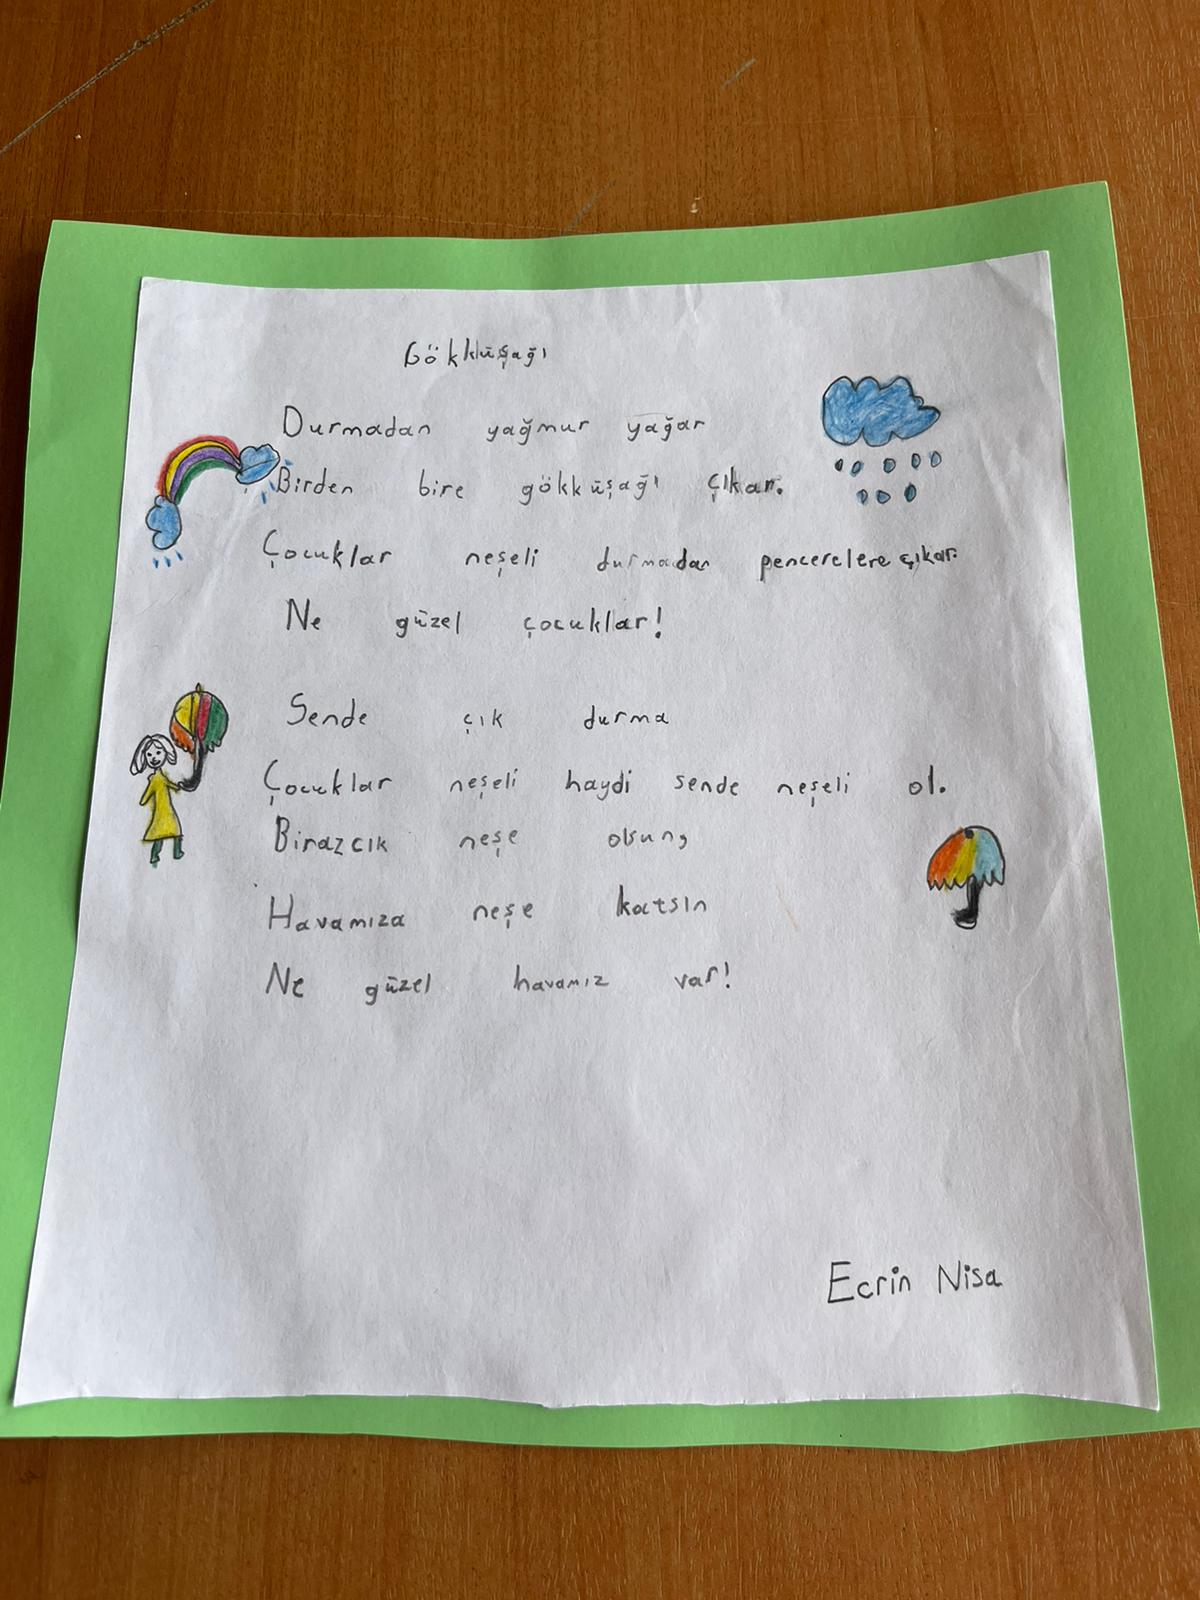 Gökküşağı
Durmadan yağmur yağar
Birden bire gökküşağı çıkar.
Çocuklar neşeli durmadan pencerelere çıkar.
Ne güzel çocuklar!
Sende çık durma
Çocuklar neşeli haydi sende neşeli ol.
Birazcık neşe olsun,
Havamıza neşe katsın
Ne güzel havamız var!
Ecrin Nisa